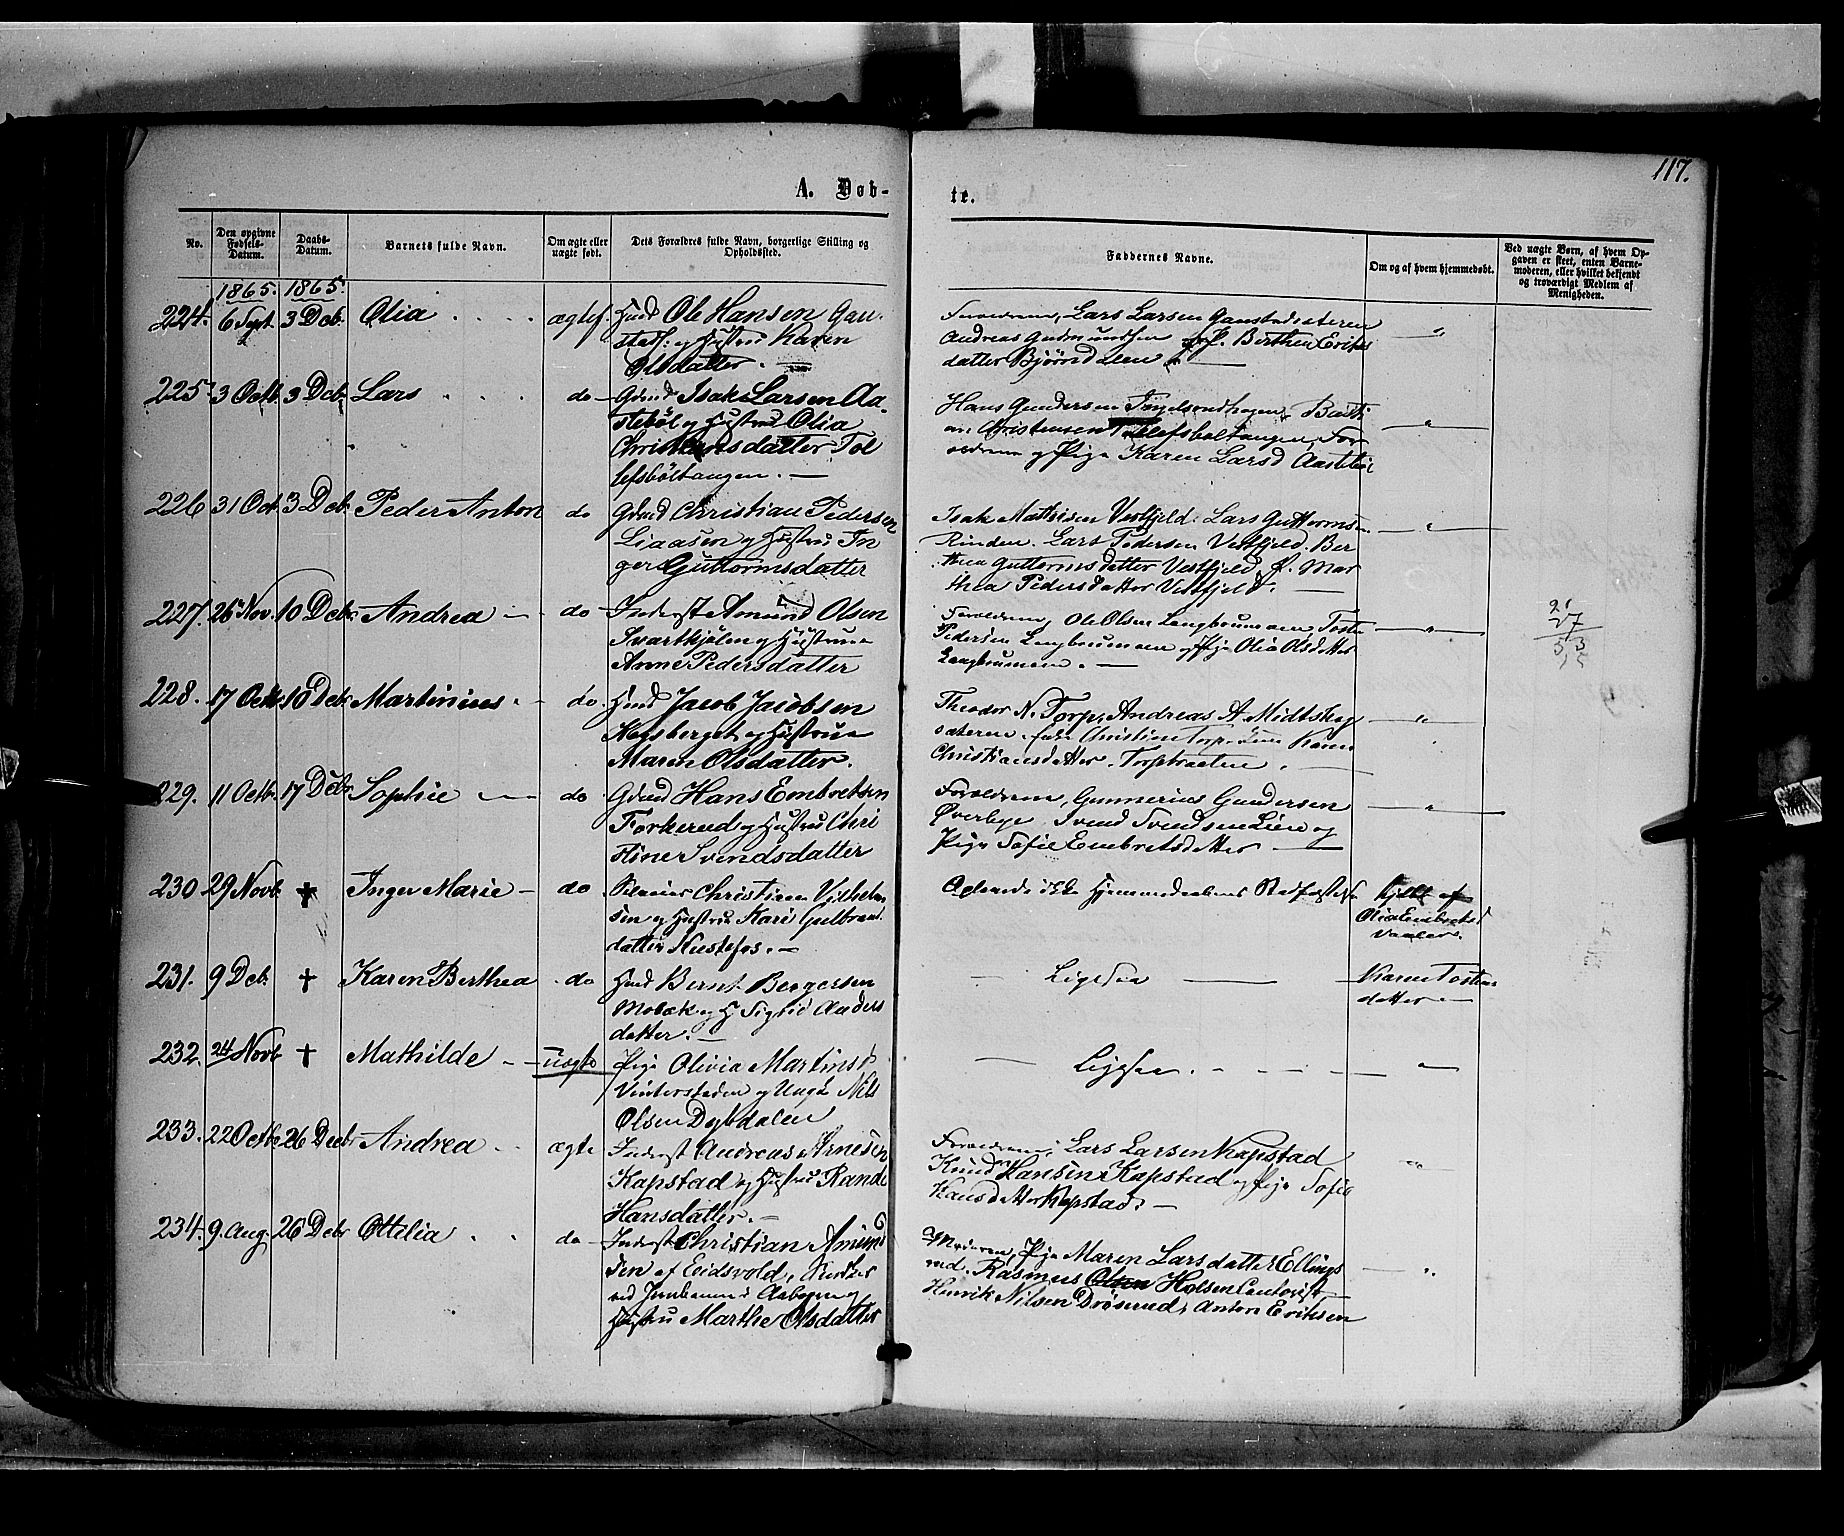 117.
A. Døb-
te.
No.
Den opgivne Fødsels-Datum.
Daabs-Datum.
Barnets fulde Navn.
Om ægte eller uægte født.
Dets Forældres fulde Navn, borgerlige Stilling og Opholdssted.
Faddernes Navne.
Om og af hvem hjemmedøbt.
Ved uægte Børn, af hvem Opgaven er skeet, enten Barnemoderen, eller hvilket bekjendt og troværdigt Medlem af Menigheden.
1865. 1865.
224. 6 Sept. 3 Deb. Olia ægtef. Husd Ole Hansen Gau-
stads. og Hustru Karen
Olsdatter.
Forældrene, Lars Larsen Gaustadeteren
Andreas Gudmundsen P. Berthea Eriks
datter Bjørndalen
225 3 Octb 3 Deb. Lars do Gdmd Isak Larsen Aa-
stebøl og Hustru Olia
Christiansdatter Tol
lefsböltangen.
Hans Gundersen
Christensen Tollefsboltangen, For
ældrene og Pige Karen Larsd Aastebøl
226 31 Oct. 3 Deb. Peder Anton do Gdmd Christian Pedersen
Liaasen og Hustru In
ger Guttormsdatter
Isak Mathisen Vestfjeld. Lars Guttorms.
Rinden. Lars Pedersen Vestfjeld. Ber
thea Guttormsdatter Vestfjeld P. Mar
thea Pedersdatter Vestfjeld.
227. 26 Nov. 10 Debr. Andrea do Inderst Amund Olsen
Svartkjølen og Hustrue
Anne Pedersdatter
Forældrene, Ole Olsen Langbrunnen, Toste
Pedersen Langbrunnen og Pige Olia Olsdatter
Langbrunnen.
21
27
228. 17 Octb 10 Debr Martinius do. Husd Jacob Jacobsen
og Hustrue
Maren Olsdatter.
Theodor N. Torp, Andreas A. Midtskog
sæteren. Christian Torp
Christiansdatter. Torpbraaten.
229. 11 Octb. 17 Debr Sophie do Gdmd Hans Embretsen
Forkerud og Hustru Chri
stine Svendsdatter
Forældrene, Gunnerius Gundersen
Øverbye Svend Svendsen Lien og
Pige Sofie Embretsdatter
230 29 Novb. + Inger Marie do Christian Vilhelm
sen og Hustru Kari Gulbrands
datter Kustefos.
ikke Hjemmedaabens Stadfæstelse
af
Olia Embretsd
231. 9 Deb. + Karen Berthea do Husd Bernt Bergersen
Mobæk og H Sigrid Anders
datter.
Ligesaa
Karen Tostens
datter
232. 24 Novb + Mathilde uægte Pige Olivia Martinsd
Vintersteden og Ungk Nils
Olsen Dybdalen
Ligesaa.
233. 22 Octb 26 Decbr Andrea ægte Inderst Andreas Arnesen
Kapstad og Hustru Rande
Hansdatter.
Forældrene, Lars Larsen Kapstad
Knud Hansen Kapstad og Pige Sofie
Hansdatter Kapstad.
234. 9. Aug. 26 Debr Ottelia do Inderst Christian Amund
sen af Eidsvold,
ved Jernbanen i Aabogen og
Hustru Marthe Olsdatter
Moderen, Pige Maren Larsdatter Ellings
rud. Rasmus Olsen Holsen
Henrik Nilsen Drøserud, Anton Eriksen